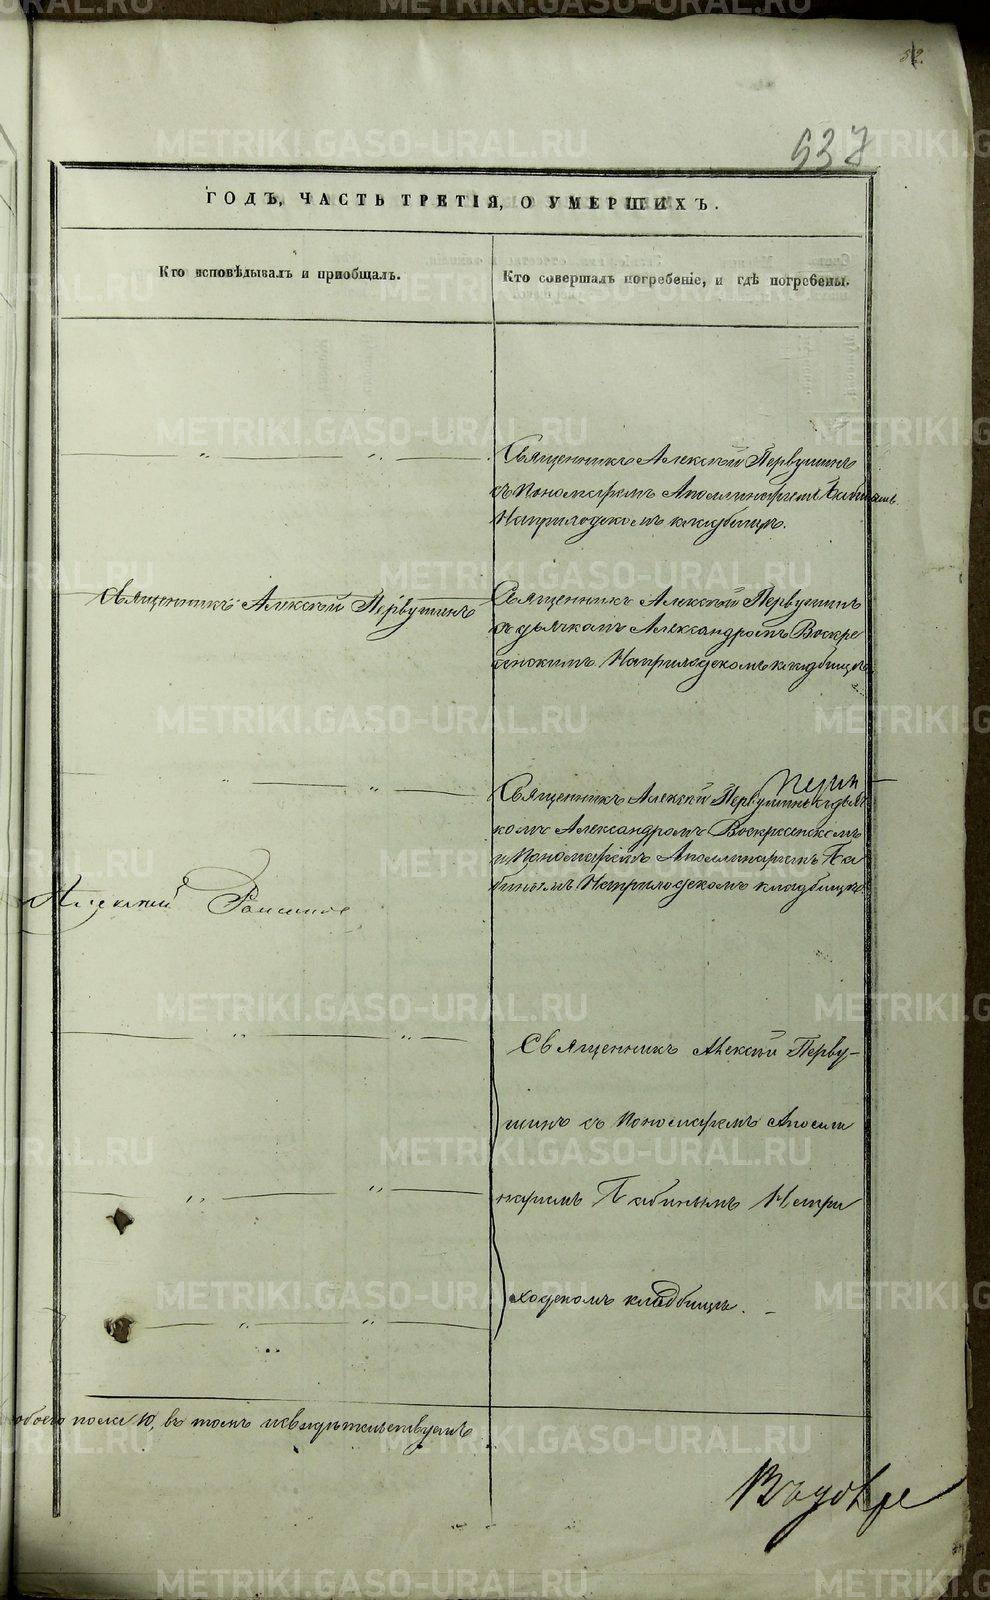 52.
537
ГОДЪ, ЧАСТЬ ТРЕТІЯ, О УМЕРШИХЪ.
Кто исповѣдывалъ и приобщалъ.
Кто совершалъ погребеніе, и гдѣ погребены.
Священникъ Алексѣй Первушинъ
съ Пономаремъ Аполлинаріемъ Бабинымъ
На приходскомъ кладбищѣ.
Священникъ Алексѣй Первушинъ
Священникъ Алексѣй Первушинъ
съ дьячкомъ Александромъ Воскре
сенскимъ На приходскомъ кладбищѣ
Священникъ Алексѣй Первушинъ съ дьяч
комъ Александромъ Воскресенскимъ
и Пономаремъ Аполлинаріемъ Ба
бинымъ На приходскомъ кладбищѣ
Алексѣй
Священникъ Алексѣй Перву-
шинъ съ Пономаремъ Аполли
наріемъ Бабинымъ На при
ходскомъ кладбищѣ.
обоего пола 10, въ томъ и свидѣтельствуемъ
METRIKI.GASO-URAL.RU